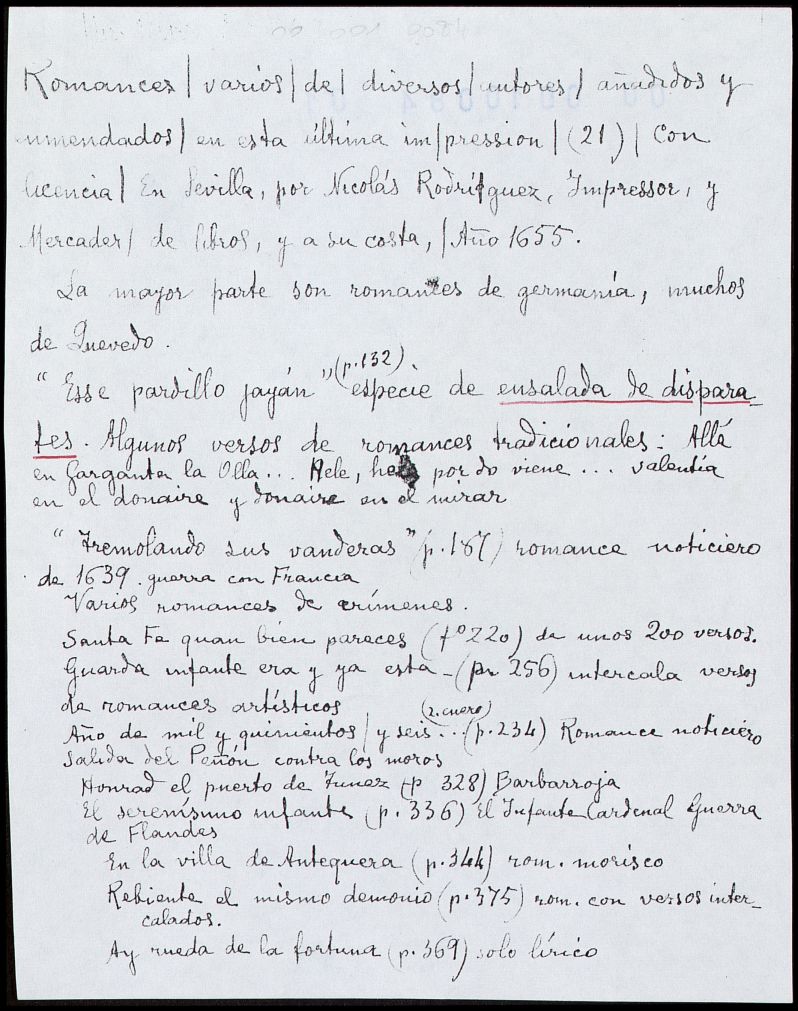 Romances / varios / de / diversos / autores / añadidos y
enmendados / en esta última im/pression / (21) / Con
licencia / En Sevilla, por Nicolás Rodríguez, Impressor, y
Mercader / de libros, y a su costa, / Año 1655.
La mayor parte son romances de germanía, muchos
de Quevedo.
"Esse pardillo jayán" (p. 132) especie de ensalada de dispara-
tes. Algunos versos de romances tradicionales: Allá
en Garganta la Olla... Hele, hele por do viene... valentía
en el donaire y donaire en el mirar
"Tremolando sus vanderas" (p. 187) romance noticiero
de 1639. guerra con Francia
Varios romances de crímenes.
Santa Fe quan bien pareces (fº 220) de unos 200 versos.
Guarda infante era y ya esta - (p. 256) intercala versos
de romances artísticos
Año de mil y quinientos / y seis... (p. 234) Romance noticiero
Salida del Peñón contra los moros
Honrad el puerto de Tunez (p 328) Barbarroja
El serenísimo infante (p. 336) El Infante Cardenal Guerra
de Flandes
En la villa de Antequera (p. 344) rom. morisco
Rebiente el mismo demonio (p. 375) rom. con versos inter-
calados.
Ay rueda de la fortuna (p. 369) solo lírico